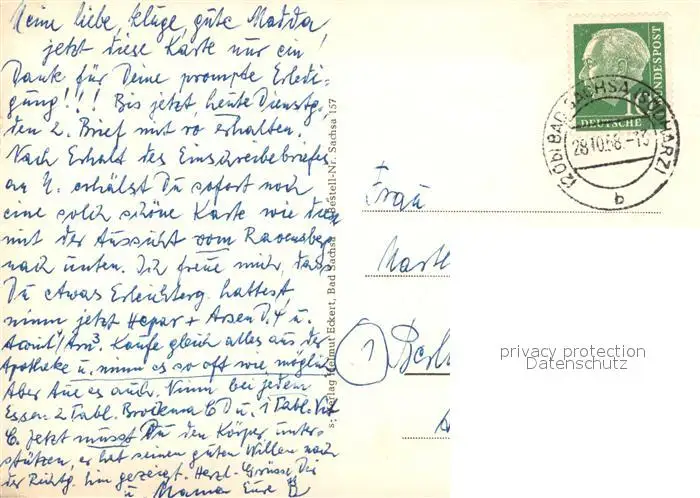 Meine liebe, kluge, gute Madda
jetzt diese Karte nur ein
Dank für Deine prompte Erledi-
gung!!! Bis jetzt, heute Dienstg.
den 2. Brief mit erhalten.
Nach Erhalt des Einschreibebriefes
an erhälst Du sofort noch
eine solch schöne Karte wie diese
mit der Aussicht vom Ravensberg
nach unten. Ich freue mich, dass
Du etwas Erleichterg. hattest,
nimm jetzt Hepar + Arsen D.4 u.
Kaufe gleich alles aus der
Apotheke u. nimm es so oft wie möglich
Aber tue es auch. Nimm bei jedem
Essen 2 Tabl. u. 1 Tabl. Vit
C. Jetzt musst Du den Körper unter-
stützen, er hat seinen guten Willen nach
der Richtg. hin gezeigt. Herzl. Grüsse Dir
u. Mama Eure
Verlag Helmut Eckert, Bad Sachsa
Bestell-Nr. Sachsa 157
DEUTSCHE
BUNDESPOST
10
(20b) BAD SACHSA (SÜDHARZ)
28.10.58.-13
b
Frau
1
privacy protection
Datenschutz